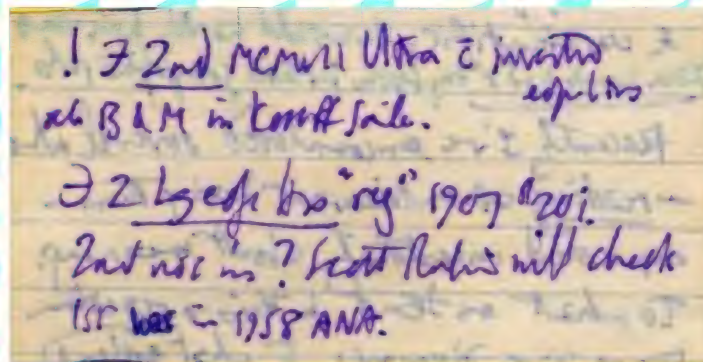 ! ∃ 2nd McMull Ultra c̄ inverted
edge ltrs
B & M in Kosoff Sale.
∃ 2 Lg edge ltrs "reg" 1907 $20s.
2nd was in ? Scott Rubin will check
1st was in 1958 ANA.